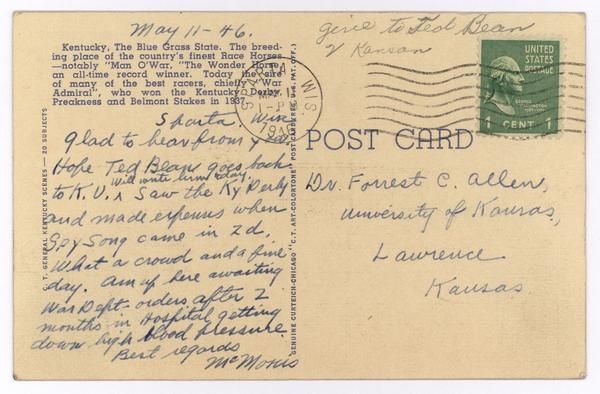 May 11-46.
give to Ted Bean
Kansan
Kentucky, The Blue Grass State. The breed-
ing place of the country's finest Race Horses
—notably "Man O'War, "The Wonder Horse,"
an all-time record winner. Today the sire
of many of the best racers, chiefly "War
Admiral", who won the Kentucky Derby,
Preakness and Belmont Stakes in 1937.
SPARTA
WIS
1 - P
UNITED
STATES
POSTAGE
GEORGE
WASHINGTON
1 CENT 1
C. T. GENERAL KENTUCKY SCENES — 20 SUBJECTS
GENUINE CURTEICH-CHICAGO "C.T. ART-COLORTONE" POST CARD (REG. U.S. PAT. OFF.)
POST CARD
Sparta, Wis
Glad to hear from
Hope Ted Bean goes back
will write him today.
to K.U. ^ Saw the Ky Derby
and made expenses when
Spy Song came in 2d.
What a crowd and a fine
day. Am up here awaiting
War Dept. orders after 2
months in Hospital getting
down high blood pressure
Best regards
Dr. Forrest C. Allen,
University of Kansas,
Lawrence
Kansas.